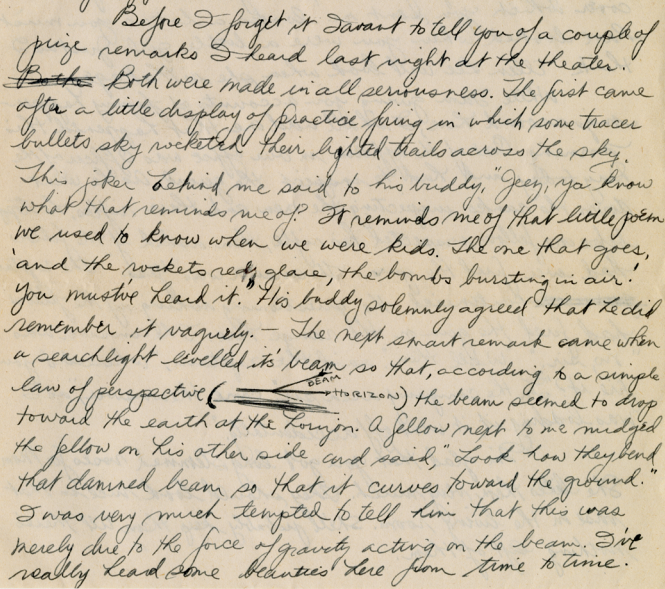 Before I forget it I want to tell you of a couple of
prize remarks I heard last night at the theater.
Bothe Both were made in all seriousness. The first came
after a little display of practice firing in which some tracer
bullets sky rocketed their lighted trails across the sky.
This joker behind me said to his buddy, "Jeez, ya know
what that reminds me of? It reminds me of that little poem
we used to know when we were kids. The one that goes,
'and the rockets red glare, the bombs bursting in air.'
You must've heard it." His buddy solemnly agreed that he did
remember it vaguely. — The next smart remark came when
a searchlight levelled it's beam so that, according to a simple
law of perspective ( BEAM HORIZON) the beam seemed to drop
toward the earth at the horizon. A fellow next to me nudged
the fellow on his other side and said, "Look how they bend
that damned beam so that it curves toward the ground."
I was very much tempted to tell him that this was
merely due to the force of gravity acting on the beam. I've
really heard some beauties here from time to time.